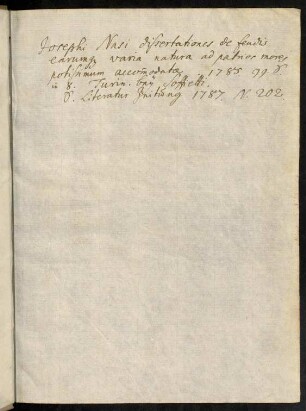 Josephi Nusi dissertationes de feudis
earumq varia natura ad patrios mores
potissimum accom̅odatae 1785 99 S
in 8. Turin. bey Soffietti.
S. Literatur Zeitung 1787. N. 202